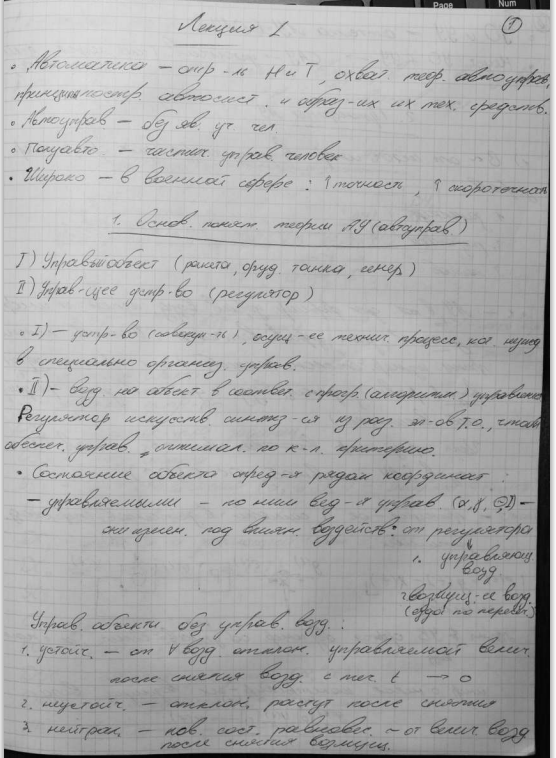 Page
Num
Лекция 1
1
• Автоматика – отр-ль Н и Т, охват. теор. автоуправ,
принципы постр. автосист. и образ-их их тех. средств.
• Автоуправ – без яв. уч. чел.
• Полуавто – частич. управ. человек
• Широко – в военной сфере: ↑ точность, ↑ скоротечность
1. Основ. понят. теории АУ (автоуправ)
I) Управ-ый объект (ракета, оруд. танка, генер)
II) Управ-щее устр-во (регулятор)
• I) – устр-во (совокуп-ть), осущ-ее технич. процесс, кот. нужд
в специально организ. управ.
• II) – возд на объект в соответ. с прогр. (алгоритм.) управления
Регулятор искусств. синтез-ся из раз. эл-ов т.о., чтобы
обеспеч. управ. оптимал. по к-л. критерию.
• Состояние объекта опред-я рядом координат:
– управляемыми – по ним вед-я управ. –
они измен. под влиян. воздейств: от регулятора
1. управляющ
возд
2 возмущ-ее возд.
(езда по пересеч.)
Управ. объекты без управ. возд:
1. устойч. – от ∀ возд. отклон. управляемой велич.
после снятия возд. с теч. t → 0
2. неустойч. – отклон. растут после снятия
3. нейтрал. – нов. сост. равновес. ~ от велич возд
после снятия возмущ.